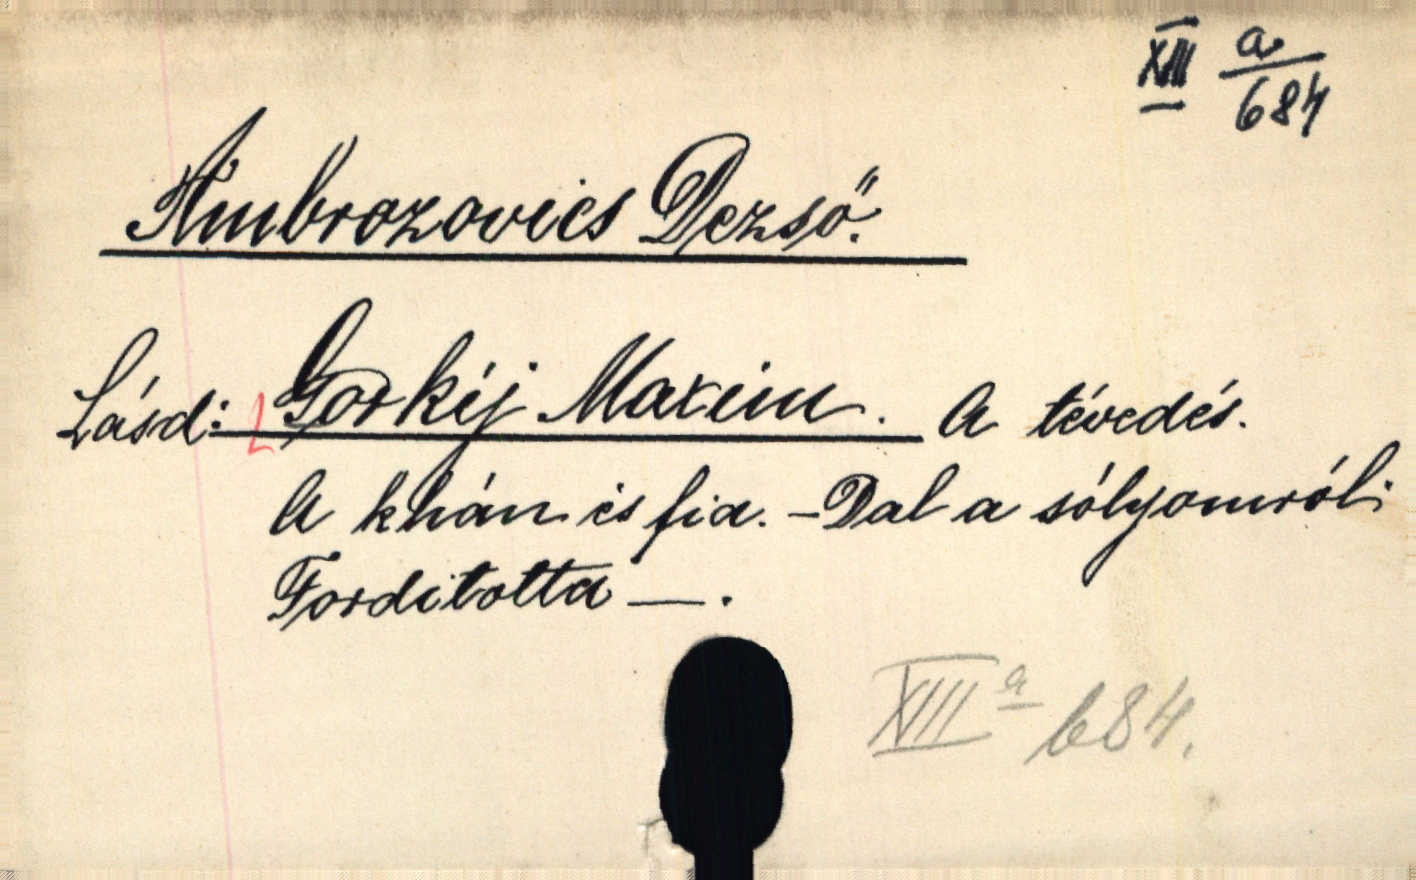 XIII a/684
Ambrozovics Dezső.
Lásd: Gorkij Maxim. A tévedés.
A khán és fia. - Dal a sólyomról.
Forditotta —.
XIII a 684.